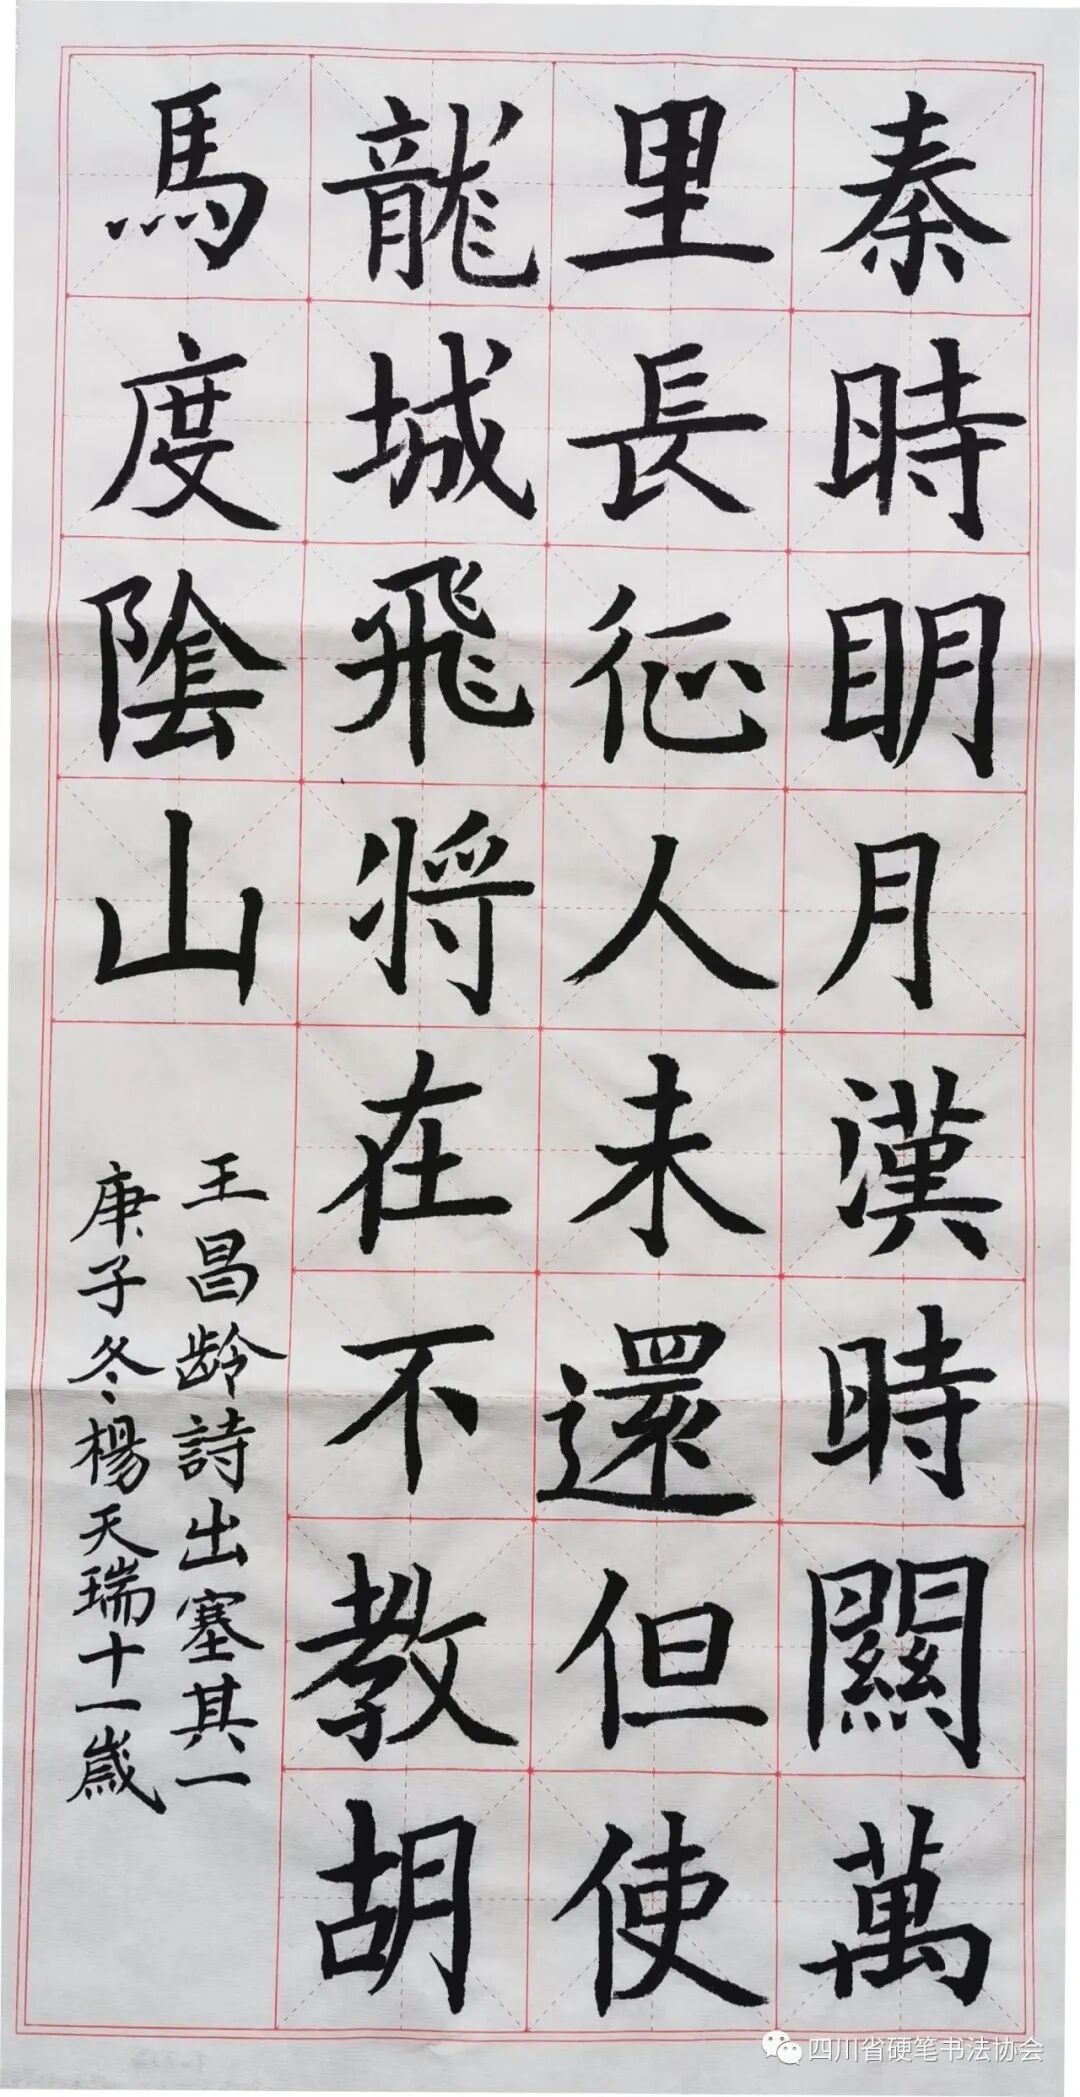 秦時明月漢時關萬
里長征人未還但使
龍城飛将在不教胡
馬度陰山
王昌龄詩出塞其一
庚子冬楊天瑞十一歲
四川省硬笔书法协会